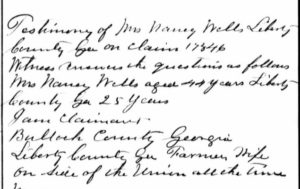 Testimony of Mrs Nancy Wells Liberty
County Ga on claim 17846
Witness answers the questions as follows
Mrs Nancy Wells aged 44 years Liberty
County Ga 25 Years
I am Claimant
Bulloch County Georgia
Liberty County Ga Farmers Wife
on side of the Union all the time